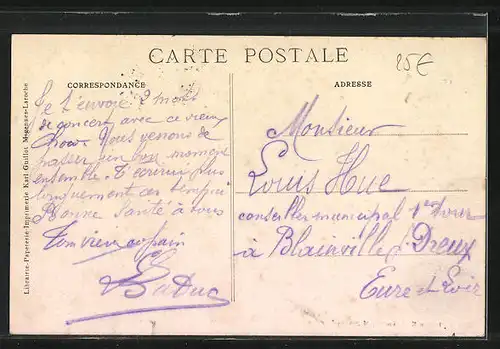 CARTE POSTALE
25€
CORRESPONDANCE
ADRESSE
Je t'envoie 2 mots
de concert avec ce vieux
Nous venons de
passer un bon moment
ensemble. T'écrirai plus
longuement ces temps-ci
Bonne Santé à vous
Ton vieux copain
Monsieur
Louis Hue
conseiller municipal 1er tour
à Blainville p. Dreux
Eure et Loir
Librairie-Papeterie-Imprimerie Karl Guillot